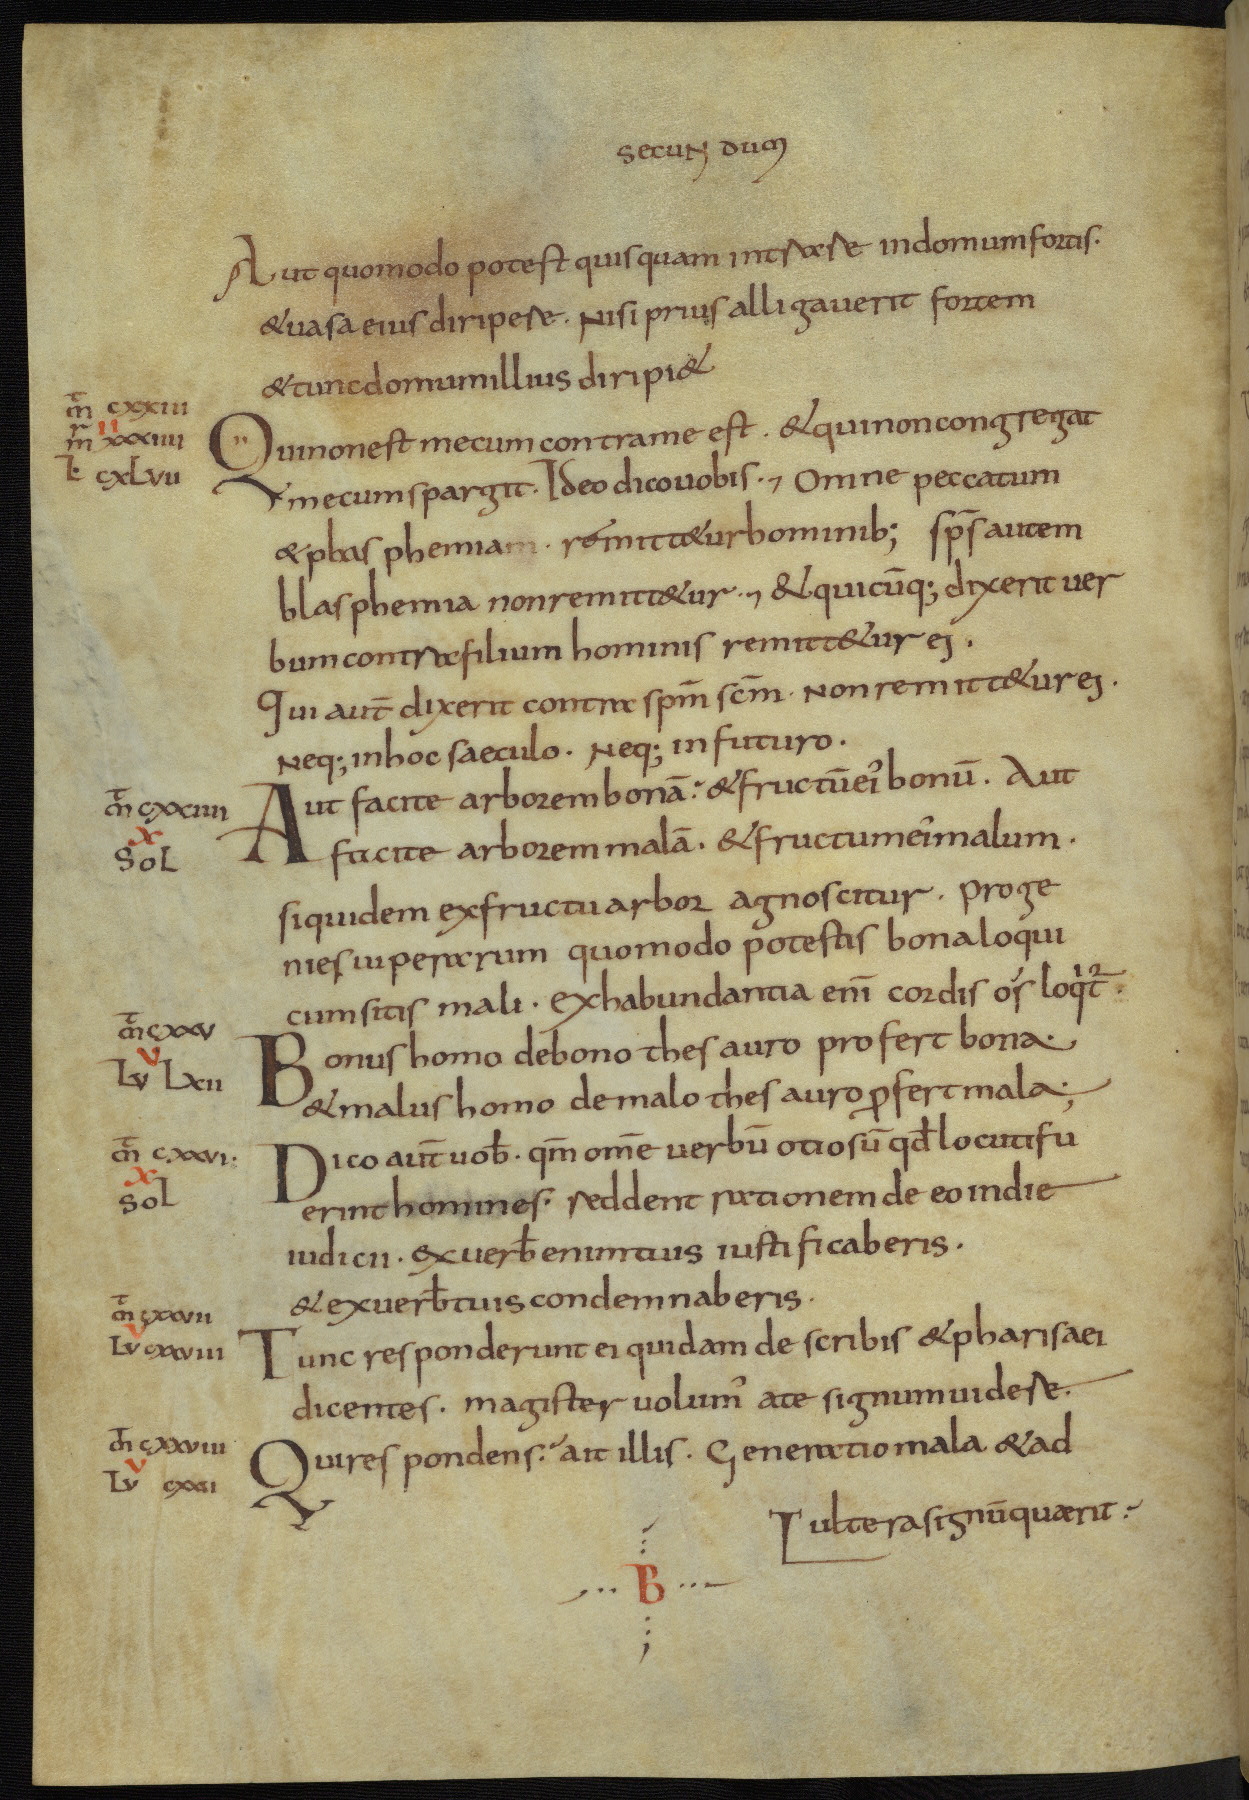 SECUN DUM
Aut quomodo potest quisquam intrare in domum fortis.
& uasa eius diripere. Nisi prius alligauerit fortem
& tunc domum illius diripi&
m̄ cxxiii
m̄ xxxiiii
ii
L cxLvii
Qui non est mecum contra me est. & qui non congregat
mecum spargit. Ideo dico uobis. Omne peccatum
& blasphemiam. remitt&ur hominib; sp̄s autem
blasphemia non remitt&ur. & quicūq; dixerit uer
bum contra filium hominis remitt&ur ei.
Qui aut̄ dixerit contra sp̄m sc̄m. Non remitt&ur ei.
Neq; in hoc saeculo. Neq; in futuro.
m̄ cxxiiii
x
SoL
Aut facite arborem bonā. & fructū ei' bonū. Aut
facite arborem malā. & fructum ei' malum.
siquidem ex fructu arbor agnoscitur. Proge
nies uiperarum quomodo potestis bona loqui
cum sitis mali. Ex habundantia eni̅ cordis os loqͥt̄.
m̄ cxxv
v
Lv Lxii
Bonus homo de bono thesauro profert bona.
& malus homo de malo thesauro ꝓfert mala;
m̄ cxxvi.
x
SoL
Dico aut̄ uob̄. qm̄ om̄e uerbū otiosū qđ locuti fu
erint homines. reddent rationem de eo in die
iudicii. Ex uerb̄ enim tuis iustificaberis.
& ex uerb̄ tuis condemnaberis.
m̄ cxxvii
v
Lv cxxviii
Tunc responderunt ei quidam de scribis & pharisaei
dicentes. magister uolum' a te signum uidere.
m̄ cxxviii
v
Lv cxxxi
Qui respondens. ait illis. Generatio mala & ad
ultera signū quaerit.
B